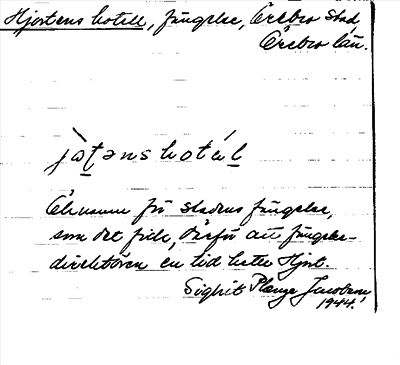 Hjortens hotell, fängelse, Örebro stad
Örebro län.
jòʈəns hotél
Öknamn för stadens fängelse,
som det fick, därför att fängelse-
direktören en tid hette Hjort.
Sigbrit Plænge Jacobson,
1944.